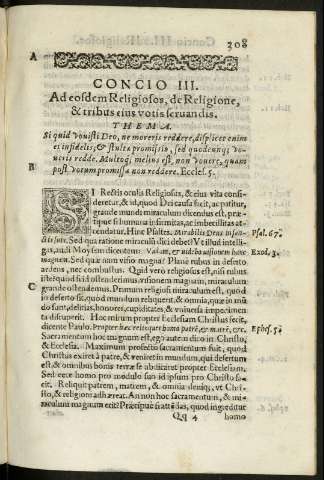 308
A
CONCIO III.
Ad eosdem Religiosos, de Religione,
& tribus eius votis seruandis.
THEMA.
Si quid vouisti Deo, ne moreris reddere, displicet enim
ei infidelis, & stulta promissio, sed quodcunq; vo-
ueris redde. Multoq; melius est, non vouere, quam
B
post votum promissa non reddere. Eccles. 5.
SI Rectis oculis Religiosus, & eius vita consi-
deretur, & id, quod Dei causa facit, ac patitur,
grande mundi miraculum dicendus est, præ-
tipue si humana infirmitas, ac imbecillitas at-
tendatur. Hinc Psaltes. Mirabilis Deus in san-
Psal. 67.
ctis suis. Sed qua ratione miraculū dici debet? Vt illud intelli-
gas, audi Moysem dicentem. Vadam, & videbo visionem hanc
Exod. 3.
magnam. Sed quæ nam visio magna? Plane rubus in deserto
ardens, nec combustus. Quid vero religiosus est, nisi rubus
iste? quod si id ostenderimus, visionem magnam, miraculum
C
grande ostendemus. Primum religiosi miraculum est, quod
in deserto sit, quod mundum reliquerit, & omnia, quæ in mū-
do sunt, delitias, honores, cupiditates, &
ta disrupit. Hoc mirum propter Ecclesiam Christus fecit,
dicente Paulo. Propter hoc relinquet homo patrē, & matrē, &c.
Ephes. 5.
Sacramentum hoc magnum est, ego autem dico in Christo,
& Ecclesia. Maximum profecto sacramentum fuit, quod
Christus exiret à patre, & veniret in mundum, qui desertum
est, & omnibus bonis terræ se abdicaret propter Ecclesiam.
Sed ecce homo pro modulo suo id ipsum pro Christo fa-
cit. Reliquit patrem, matrem, & omnia deniq;, vt Chri-
sto, & religioni adhæreat. An non hoc sacramentum, & mi-
raculum magnum erit? Præcipuè si attēdas, quod ingreditur
Qq 4 homo